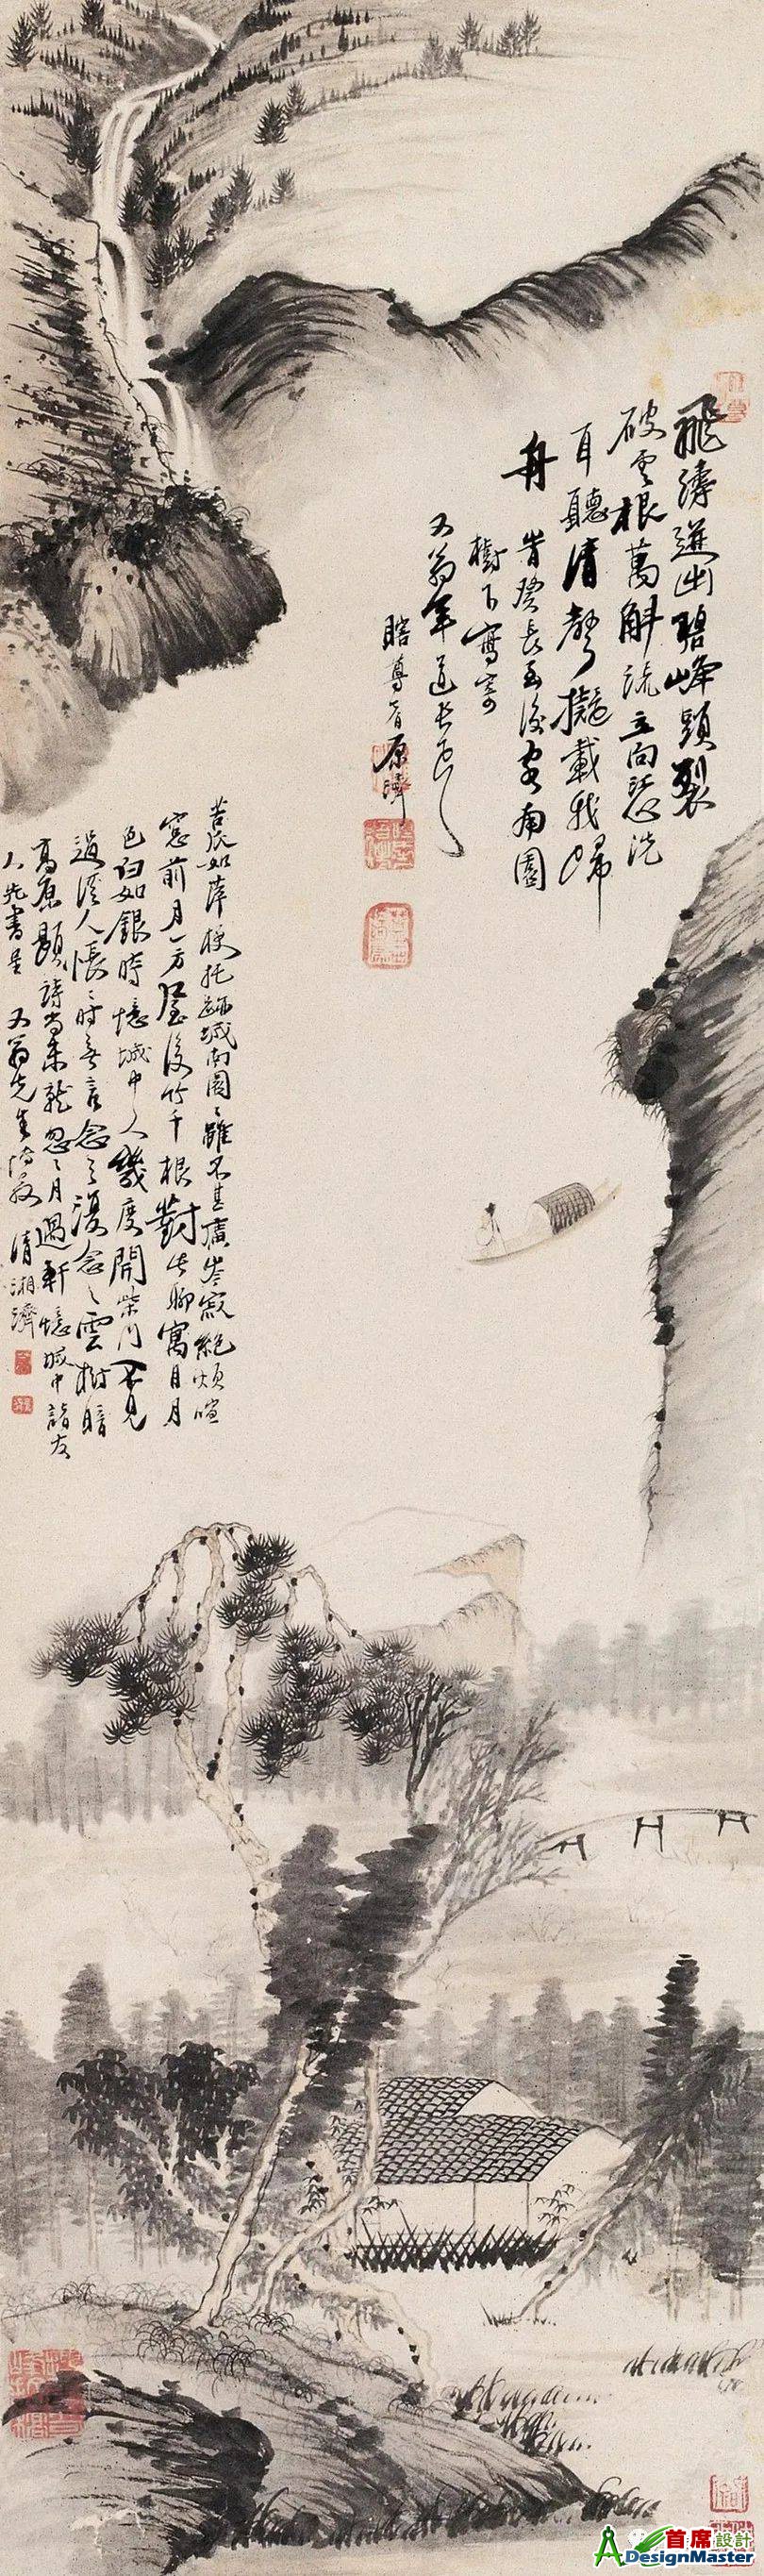 飛濤迸出碧峰頭裂
破雲根萬斛流立向咫洗
耳聽清聲擬載我歸
舟
昔癸長至後客南園
樹下寫寄
又翁年道長
瞎尊者原濟
苦瓜如萍梗托跡城南園雖不甚廣岑寂絕煩喧
窓前月一方屋後竹千根對此聊寓目月
色白如銀時憶城中人幾度開柴門不見
過溪人悵時無言念之復念之雲樹暗
高原題詩尚未就忽月過軒憶城中諸友
人先書呈
又翁先生
清湘濟
首席設計
ADesignMaster